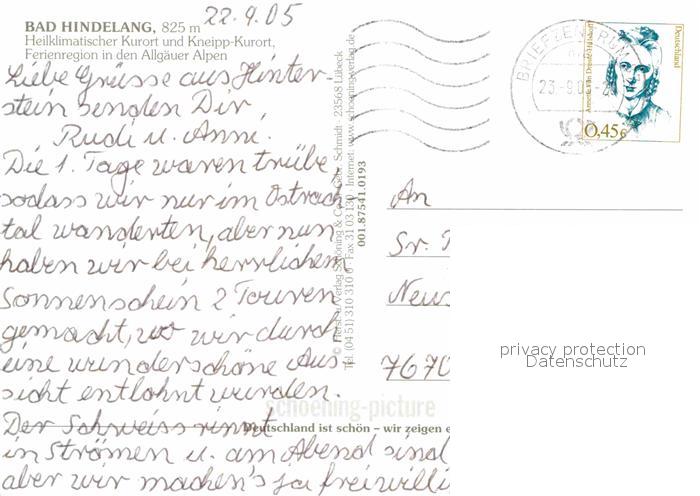 22.9.05
BAD HINDELANG, 825 m
Heilklimatischer Kurort und Kneipp-Kurort,
Ferienregion in den Allgäuer Alpen
Liebe Grüsse aus Hinter-
stein senden Dir
Rudi u. Anni.
Die 1. Tage waren trübe,
sodass wir nur im Ostrach
tal wanderten, aber nun
haben wir bei herrlichem
Sonnenschein 2 Touren
gemacht, wo wir durch
eine wunderschöne Aus-
sicht entlohnt wurden.
Der Schweiss rinnt
in Strömen u. am Abend sind
aber wir machen's ja freiwilli
© Foto u. Verlag Schöning & Co + Gebr. Schmidt · 23568 Lübeck
Tel. (0451) 310 310 · Fax 3103130 · Internet: www.schoening-verlag.de
001.87541.0193
schoening-picture
Deutschland ist schön – wir zeigen e
BRIEFZENTRUM
23.-9.0
Deutschland
0,45€
An
Sr.
7670
privacy protection
Datenschutz